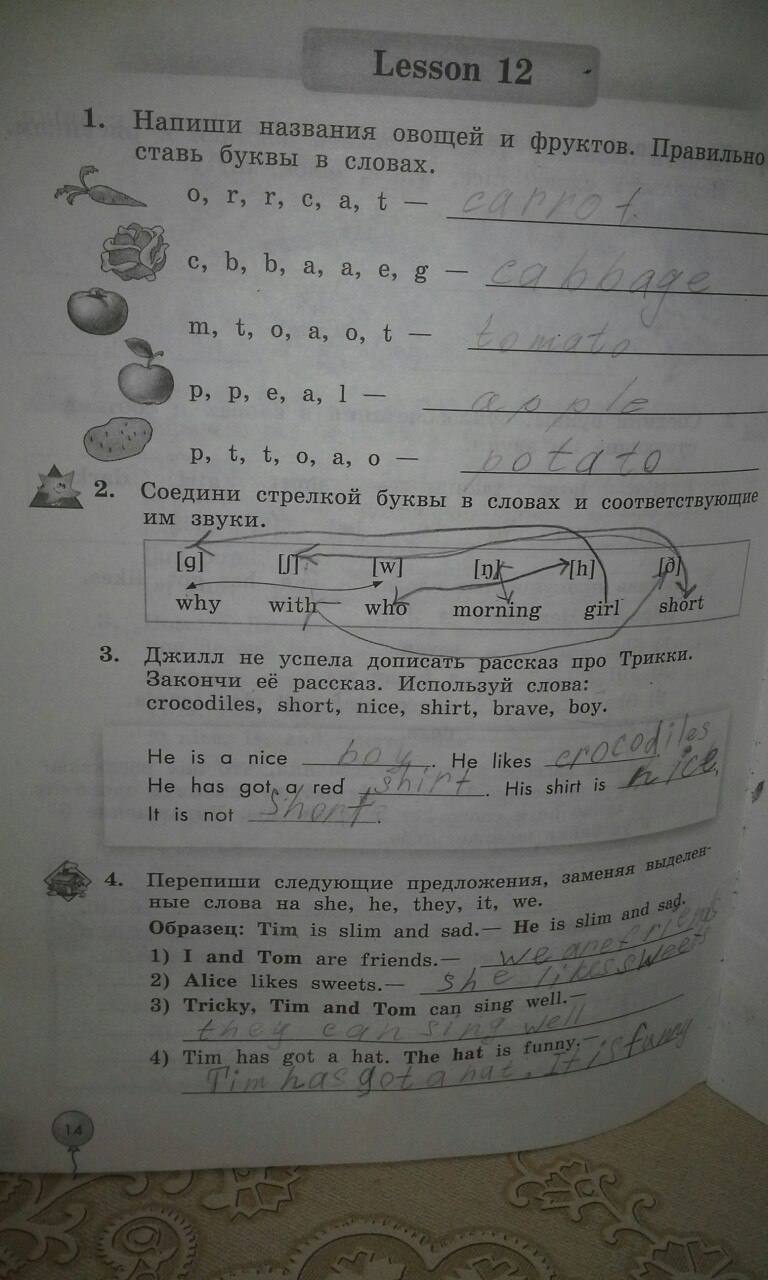 Lesson 12
1. Напиши названия овощей и фруктов. Правильно
ставь буквы в словах.
o, r, r, c, a, t — carrot
c, b, b, a, a, e, g — cabbage
m, t, o, a, o, t — tomato
p, p, e, a, l — apple
p, t, t, o, a, o — potato
2. Соедини стрелкой буквы в словах и соответствующие
им звуки.
[g] [ʃ] [w] [ŋ] [h] [ð]
why with who morning girl short
3. Джилл не успела дописать рассказ про Трикки.
Закончи её рассказ. Используй слова:
crocodiles, short, nice, shirt, brave, boy.
He is a nice boy. He likes crocodiles
He has got a red shirt. His shirt is nice.
It is not short.
4. Перепиши следующие предложения, заменяя выделен-
ные слова на she, he, they, it, we.
Образец: Tim is slim and sad.— He is slim and sad.
1) I and Tom are friends.— we are friends
2) Alice likes sweets.— she likes sweets
3) Tricky, Tim and Tom can sing well.—
they can sing well
4) Tim has got a hat. The hat is funny.—
Tim has got a hat. It is funny
14